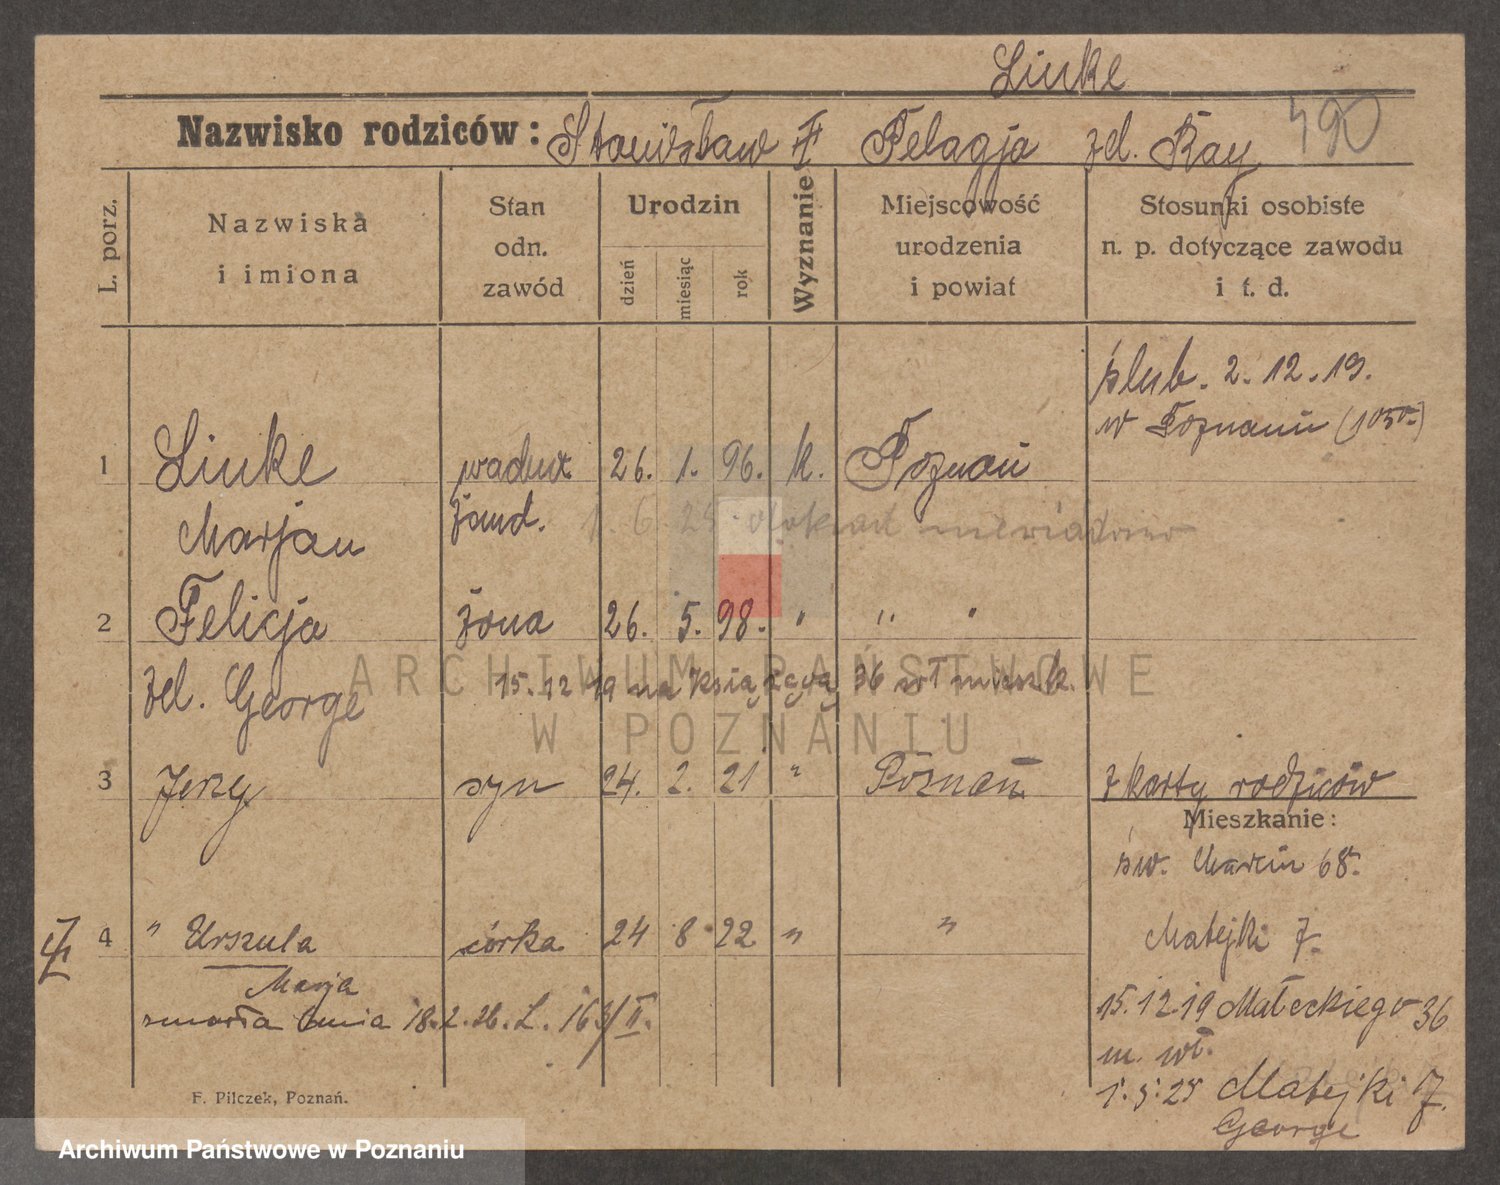 Linke
Nazwisko rodziców: Stanisław Pelagja zd. Ray 490
L. porz.
Nazwiska
i imiona
Stan
odn.
zawód
Urodzin
dzień
miesiąc
rok
Wyznanie
Miejscowość
urodzenia
i powiat
Stosunki osobiste
n. p. dotyczące zawodu
i t. d.
ślub. 2.12.19.
w Poznaniu
1 Linke 26. 1. 96. k. Poznań
Marjan żand. 1. 6. 25 dokąd niewiadomo
2 Felicja żona 26. 5. 98. " " "
zd. George 15.12 19 na 36 wł mieszk.
3 Jerzy syn 24. 2. 21 " Poznań z karty rodziców
Mieszkanie:
św. Marcin 68.
4 " Urszula córka 24 8 22 " " Matejki 7.
Marja
zmarła dnia 18.2.26. L. 163/II.
15.12.19 Małeckiego 36
m. wł.
1.5.25 Matejki 7.
George
F. Pilczek, Poznań.
ARCHIWUM PAŃSTWOWE
W POZNANIU
Archiwum Państwowe w Poznaniu